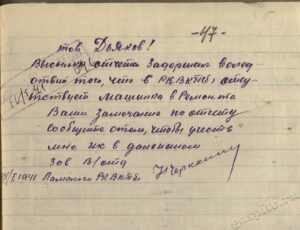 -47-
тов Дьяков!
Высылку отчета задержал вслед
ствии того, что в РКВКПб, отсу-
тствует машинка в Ремонте
Ваши замечание по отчету
сообщите о том, чтобы учесть
мне их в дальнейшем
Зав В/отд
1941 РКВКПб